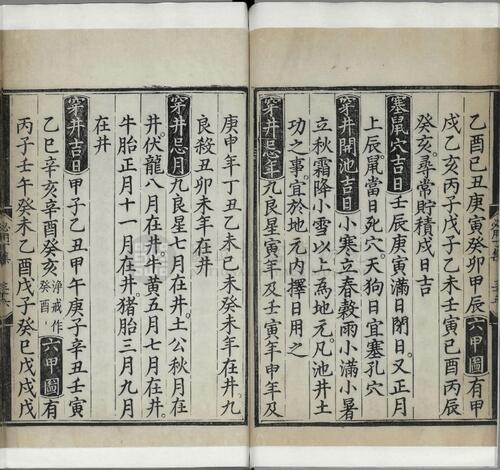 乙酉己丑庚寅癸卯甲辰六甲圖有甲
戊乙亥丙子戊子乙未壬寅己酉丙辰
癸亥尋常貯積成日吉
塞鼠穴吉日壬辰庚寅滿閉日又正月
上辰鼠當日死穴天狗日宜塞孔穴
穿井開池吉日小寒立春穀雨小滿小暑
立秋霜降小雪以上為地元凡池井土
功之事宜於地元内擇日用之
穿井忌年九良星寅年及壬寅年申年及
庚申年丁丑乙未己未癸未年在井九
良殺丑卯未年在井
穿井忌月九良星七月在井土公秋月在
井伏龍八月在井牛黄五月七月在井
牛胎正月十一月在井豬胎三月九月
在井
穿井吉日甲子乙丑甲午庚子辛丑壬寅
乙巳辛亥辛酉癸亥淨戒作癸酉六甲圖有
丙子壬午癸未乙酉戊子癸巳戊戌戊